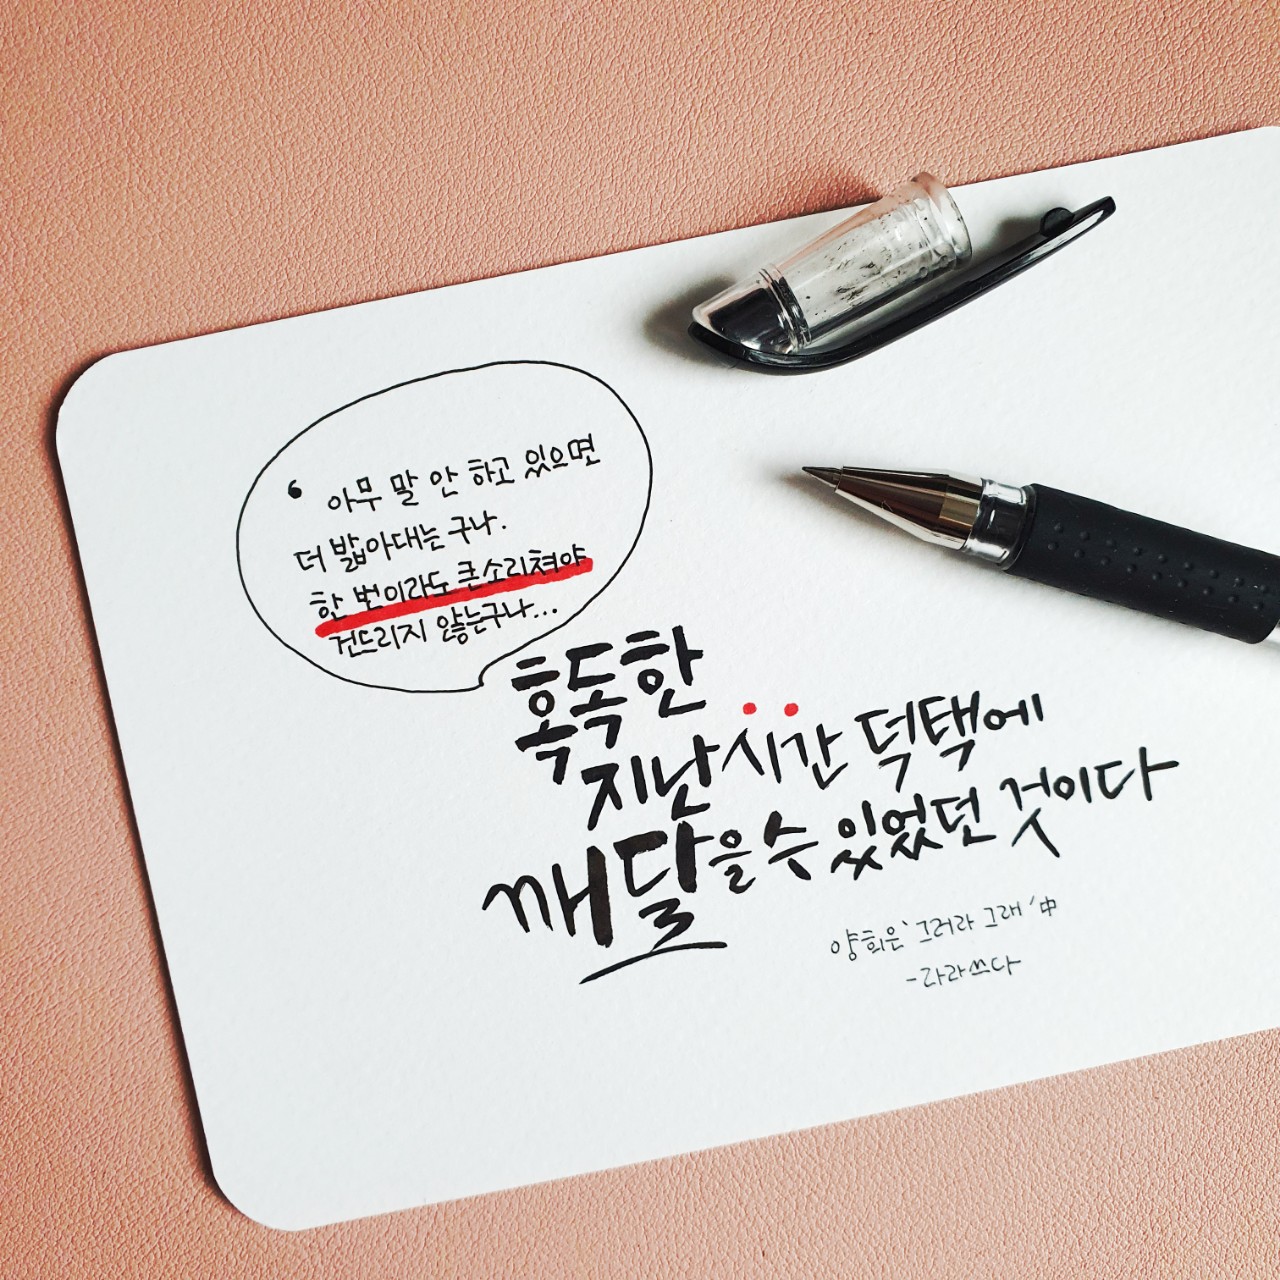 ' 아무 말 안 하고 있으면
더 밟아대는구나.
한 번이라도 큰소리쳐야
건드리지 않는구나...
혹독한
지난 시간 덕택에
깨달을 수 있었던 것이다
양희은 '그러라 그래' 中
-라라쓰다